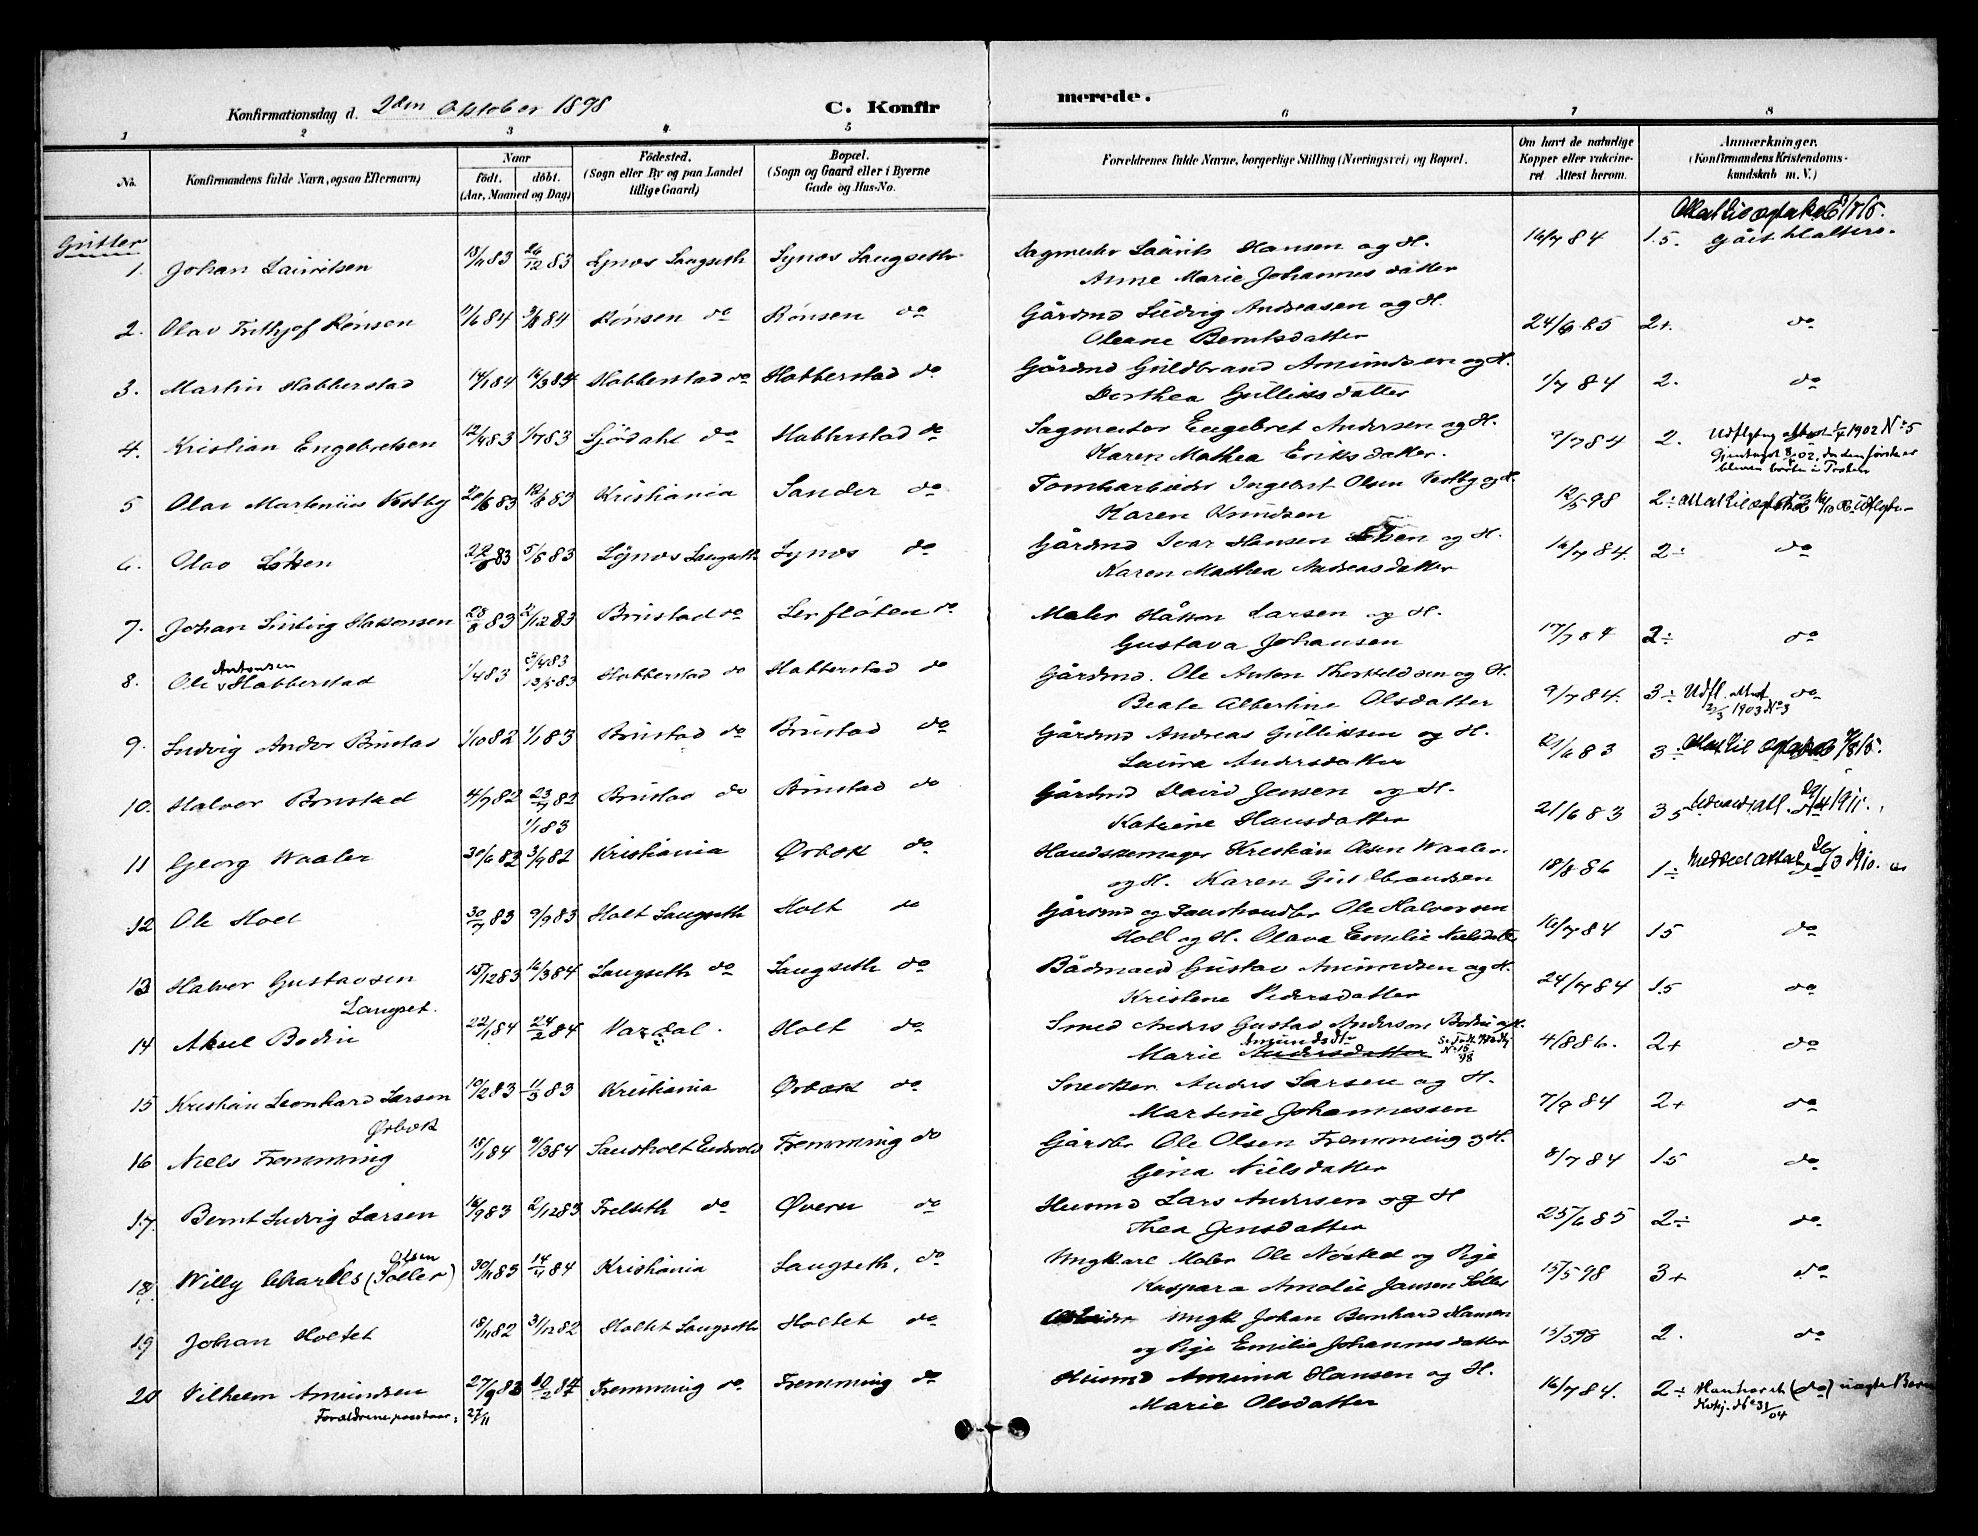 Konfirmationsdag d. 2den Oktober 1898 C. Konfir merede.
1 2 3 4 5 6 7 8
No. Konfirmandens fulde Navn, ogsaa Efternavn) Naar födt. döbt. (Aar, Maaned og Dag) Födested. (Sogn eller By og paa Landet tillige Gaard) Bopæl. (Sogn og Gaard eller i Byerne Gade og Hus-No. Forældrenes fulde Navne, borgerlige Stilling (Næringsvei) og Bopæl. Om havt de naturlige Kopper eller vakcineret Attest herom. Anmærkninger. (Konfirmandens Kristendomskundskab m. V.)
Gutter
1. Johan Lauritsen 18/11 83 26/12 83 Synes Langseth Synes Langseth Sagmester Laurits Hansen og H. 16/7 84 1.5.
Anne Marie Johannesdatter
2. Olav Frithjof Rönsen 84 84 Rönsen do Rönsen do Gårdmd Ludvig Andreasen og H. 24/6 85 2+ do
Oleane Berntsdatter
3. Martin Habberstad 14/1 84 16/3 84 Habberstad do Habberstad do Gårdmd Guldbrand Amundsen og H. 1/7 84 2. do
Dorthea Gulliksdatter
4. Kristian Engebretsen 12/4 83 1/7 83 Sjödahl do Habberstad do Sagmester Engebret Andersen og H. 9/7 84 2. Udflytng attest 1902 No 5
Karen Mathea Eriksdatter.
5 Olav Martenius Vestby 20/6 83 12/8 83 Kristiania Sander do Tomtarbeider Ingebret Olsen Vestby og H. 12/5 98 2÷
Karen Knudsen
6. Olav 83 5/8 83 Synes Langseth Synes do Gårdmd Ivar Hansen og H. 16/7 84. 2÷ do
Karen Mathea Andreasdatter
7. Johan Ludvig Hakonsen 28/8 83 2/12 83 Brustad do Lerflöten do Maler Håkon Larsen og H. 17/7 84 2÷ do
Gustava Johansen
8. Ole Antonsen Habberstad 1/4 83 13/5 83 Habberstad do Habberstad do Gårdmd. Ole Anton Thorkeldsen og H. 9/7 84. 3÷ Udfl. attest do
Beate Albertine Olsdatter 1903 No 3
9. Ludvig Andor Brustad 1/10 82 1/1 83 Brustad do Brustad do Gårdmd Andreas Gulliksen og H. 21/6 83 3÷
Laura Andersdatter
10. Halvor Brustad 4/7 82 23/7 82 Brustad do Brustad do Gårdmd David Jensen og H. 21/6 83 3.5
1/1 83 Katrine Hansdatter
11 Georg Waaler 30/6 82 3/9 82 Kristiania Ørbæk do Handskemager Kristian Olsen Waaler 18/8 86 1÷
og H. Karen Guldbrandsen
12 Ole Holt 30/7 83 9/9 83 Holt Langseth Holt do Gårdmd og Landhandler Ole Halvorsen 16/7 84 1.5 do
Holt og H. Olava Emilie Nielsdatter
13 Halvor Gustavsen 15/12 83 16/3 84 Langseth do Langseth do Bådmand Gustav Amundsen og H. 24/7 84 1.5 do
Langset. Kristine Pedersdatter
14 Aksel Bodin 22/1 84 24/2 84 Vardal. Holt do Smed Anders Gustav Anderson Bodin og H. 4/8 86. 2+ do
Marie Andersdatter Amundsdtr
15 Kristian Leonhard Larsen 10/2 83 11/3 83 Kristiania Ørbæk do Snedker Anders Larsen og H. 7/9 84 2+ do
Ørbæk Martine Johannessen
16 Niels Fremming 18/1 84 9/3 84 Sandholt Eidsvold Fremming do Gårdbr Ole Olsen Fremming og H. 8/7 84 1.5 do
Gina Nielsdatter
17. Bernt Ludvig Larsen 16/9 83 2/12 83 Frelseth do Øveren do Husmd Lars Andersen og H 25/6 85 2÷ do
Thea Jensdatter
18. Willy Charles (Søller) Olsen 30/11 83 14/4 84 Kristiania Langseth. do Ungkarl Maler Ole Nested og Pige 15/5 98 3+ do
Kaspara Amalie Jansen Søller
19 Johan Holtet 18/11 82 31/12 82 Holtet Langseth Holtet do Arbeider Ungk Johan Bernhard Hansen 15/5 98 2. do
og Pige Emilie Johannesdatter
20 Vilhelm Amundsen 27/9 83 10/2 84 Fremming do Fremming do Husmd Amund Hansen og H. 16/7 84. 2÷ (do) uægte Barn
Forældrene paastaar: 27/11 Marie Olsdatter